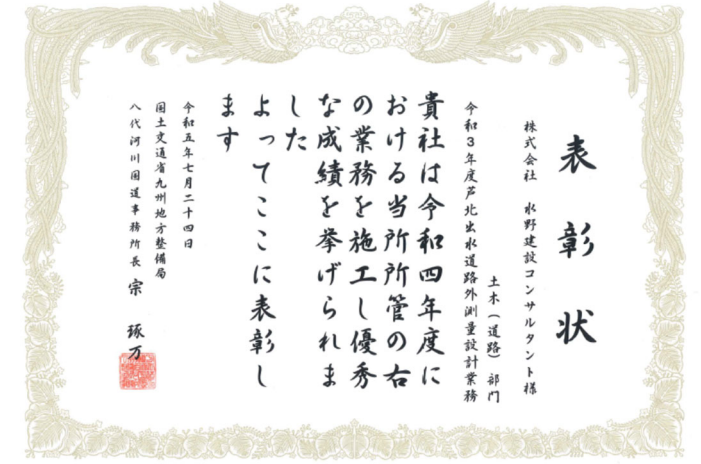 表彰状
株式会社 水野建設コンサルタント様
土木（道路）部門
令和３年度芦北出水道路外測量設計業務
貴社は令和四年度に
おける当所所管の右
の業務を施工し優秀
な成績を挙げられま
した
よってここに表彰し
ます
令和五年七月二十四日
国土交通省九州地方整備局
八代河川国道事務所長 宗 琢万